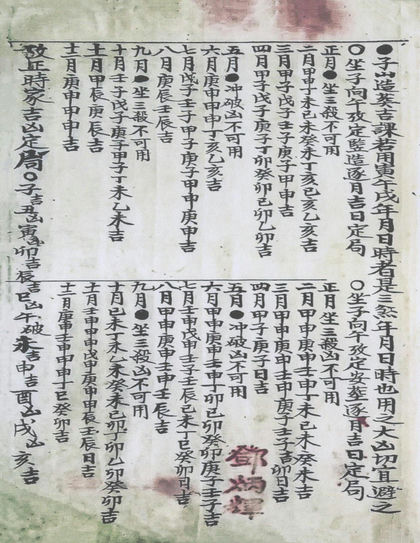 ●子山造葬吉課若用寅午戌年月日時者是三煞年月日時也用之大凶切宜避之
○坐子向午孜定監造逐月吉日定局
正月●坐三殺不可用
二月甲申丁未己未癸未丁亥己亥乙亥吉
三月甲子戊子壬子庚子甲申吉
四月甲子戊子庚子丁卯癸卯己卯乙卯吉
五月●冲破凶不可用
六月庚申甲申丁亥乙亥吉
七月戊子壬子甲子庚子甲申庚申吉
八月庚辰壬辰吉
九月●坐三殺凶不可用
十月壬子戊子庚子甲子丁未乙未吉
十一月甲辰庚辰吉
十二月庚申甲申吉
○坐子向午孜定安葬逐月吉日定局
正月●坐三殺凶不可用
二月甲申庚申壬申丁未己未癸未吉
三月甲申庚申壬申庚子壬子吉
四月甲子庚子日吉
五月●冲破凶不可用
六月甲申庚申壬申癸卯庚子壬子吉
七月壬申戊申壬子壬辰丁未丁巳癸巳日吉
八月甲申壬申壬辰吉
九月●坐三殺凶不可用
十月己未丁未乙未癸未己卯丁卯乙卯癸卯吉
十一月壬申甲申庚申甲辰壬辰日吉
十二月庚申壬申甲申丁巳癸卯吉
孜正時家吉凶定局○子吉丑凶寅凶卯吉辰吉巳凶午破未吉申吉酉凶戌凶亥吉
鄧炳輝